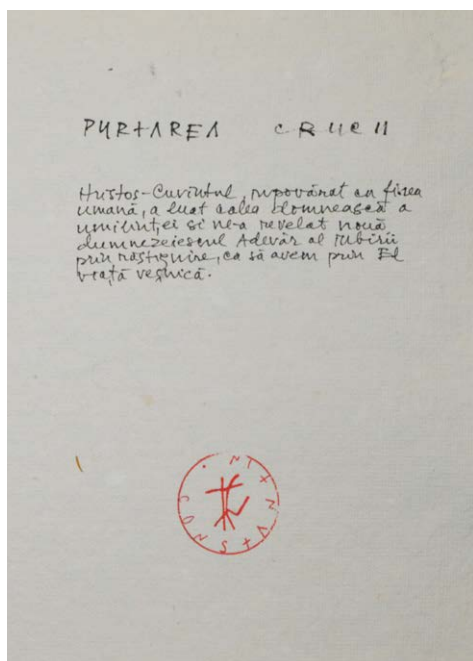 PURTAREA CRUCII
Hristos-Cuvîntul, împovărat cu firea
umană, a luat calea domnească a
umilinţei si ne-a revelat nouă
dumnezeiescul Adevăr al Iubirii
prin răstignire, ca să avem prin El
viaţă veşnică.
CONSTANTIN